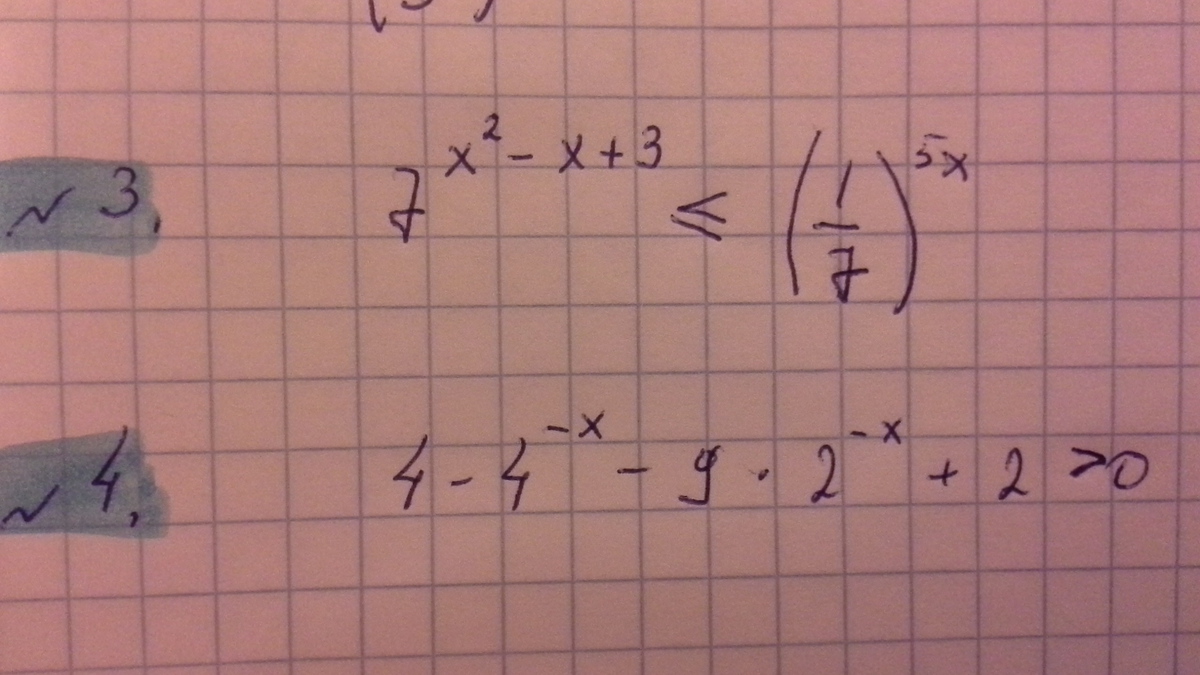 № 3. 7^{x² - x + 3} ≤ (1/7)^{5x}
№ 4. 4 - 4^{-x} - 9 · 2^{-x} + 2 > 0